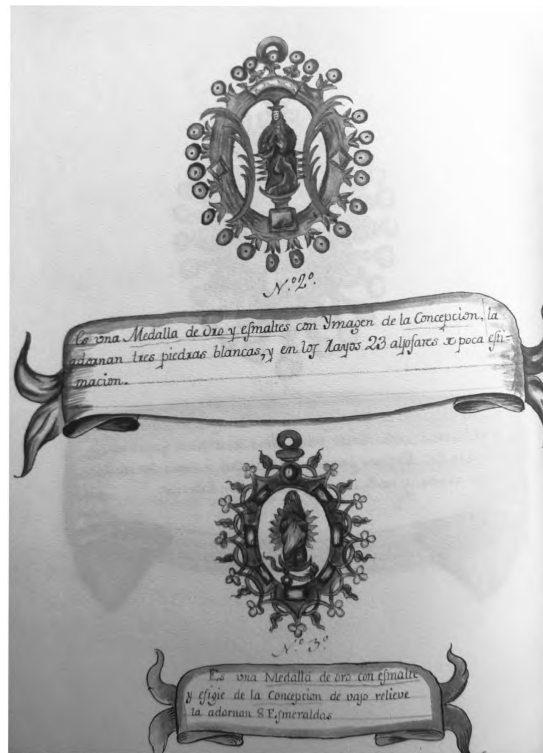 N.º 2º.
Es una Medalla de Oro y esmaltes con Ymagen de la Concepcion, la
adornan tres piedras blancas, y en los Rayos 23 aljofares de poca esti-
macion.
N.º 3º.
Es una Medalla de oro con esmalte
y efigie de la Concepcion de vajo relieve
la adornan 8 Esmeraldas